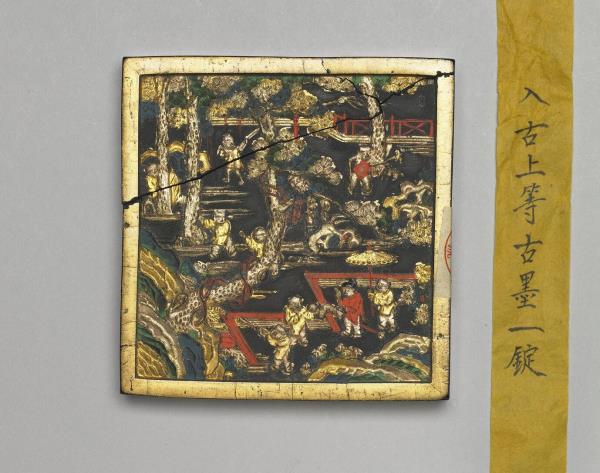 入古上等古墨一錠